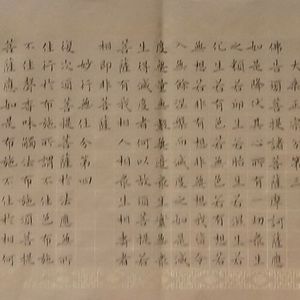 大乘正宗分第三
佛告須菩提諸菩薩摩訶薩應
如是降伏其心所有一切眾生
之類若卵生若胎生若濕生若
化生若有色若無色若有想若
無想若非有想非無想我皆令
入無餘涅槃而滅度之如是滅
度無量無數無邊眾生實無眾
生得滅度者何以故須菩提若
菩薩有我相人相眾生相壽者
相即非菩薩
妙行無住分第四
復次須菩提菩薩於法應無所
住行於布施所謂不住色布施
不住聲香味觸法布施須菩提
菩薩應如是布施不住於相何